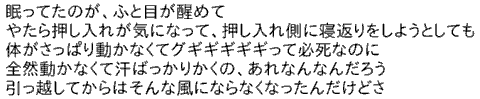 眠ってたのが、ふと目が醒めて
やたら押し入れが気になって、押し入れ側に寝返りをしようとしても
体がさっぱり動かなくてグギギギギギって必死なのに
全然動かなくて汗ばっかりかくの、あれなんなんだろう
引っ越してからはそんな風にならなくなったんだけどさ